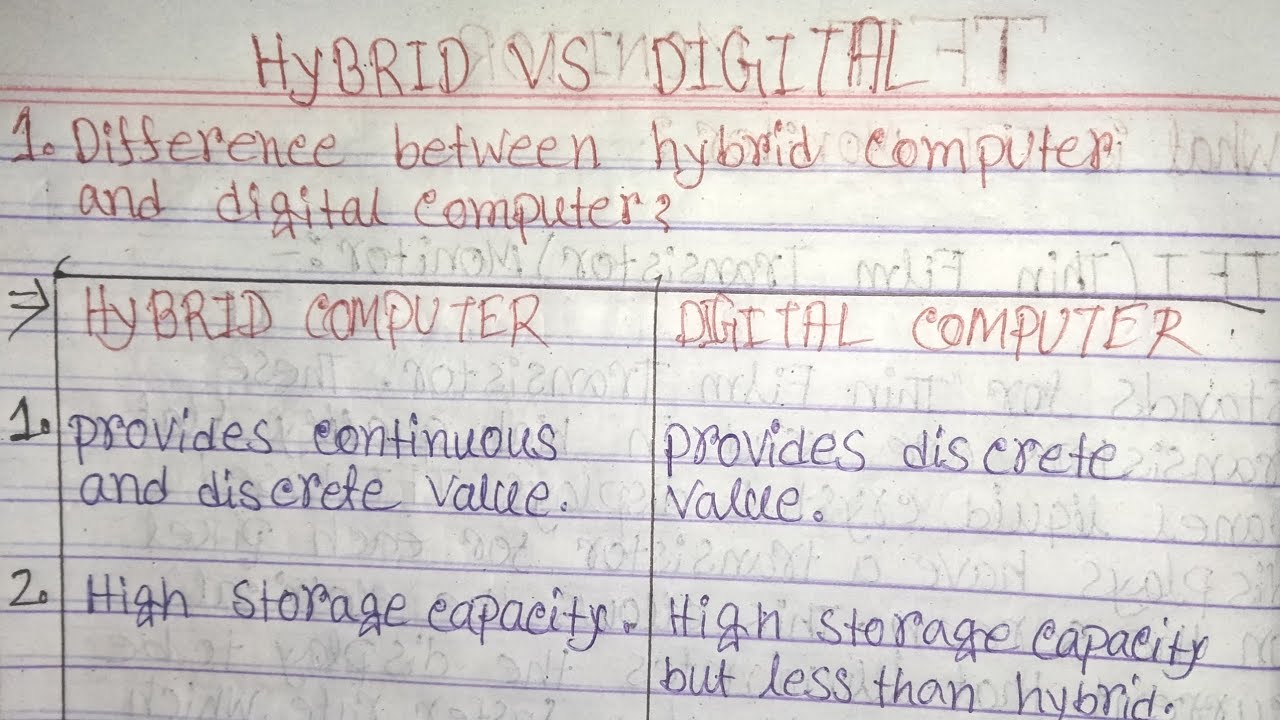 HYBRID VS DIGITAL
1. Difference between hybrid computer
and digital computer?
⇒ HYBRID COMPUTER DIGITAL COMPUTER
1. provides continuous provides discrete
and discrete value. value.
2. High storage capacity. High storage capacity
but less than hybrid.